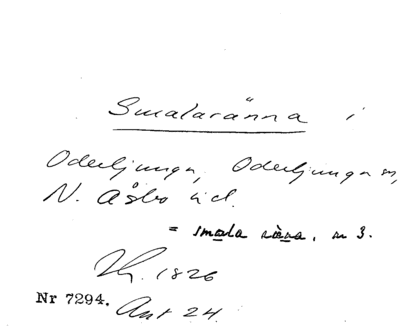 Smalaränna i
Oderljunga, Oderljunga sn,
N. Åsbo hd.
= smala ränna, n 3.
1826
Nr 7294. Ant 24.